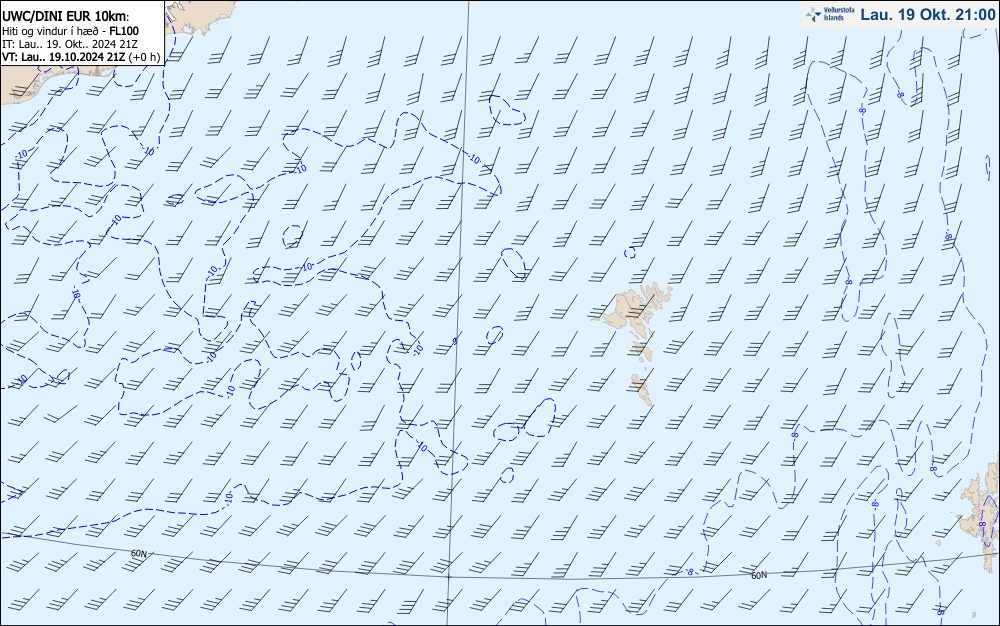 UWC/DINI EUR 10km:
Hiti og vindur í hæð - FL100
IT: Lau.. 19. Okt.. 2024 21Z
VT: Lau.. 19.10.2024 21Z (+0 h)
Veðurstofa
Íslands
Lau. 19 Okt. 21:00
-8
-8
-10
-10
-10
-10
-10
-8
-10
-10
-8
-10
-10
-10
-10
-8
-10
-8
-10
-8
-8
60N
60N
-8
-8